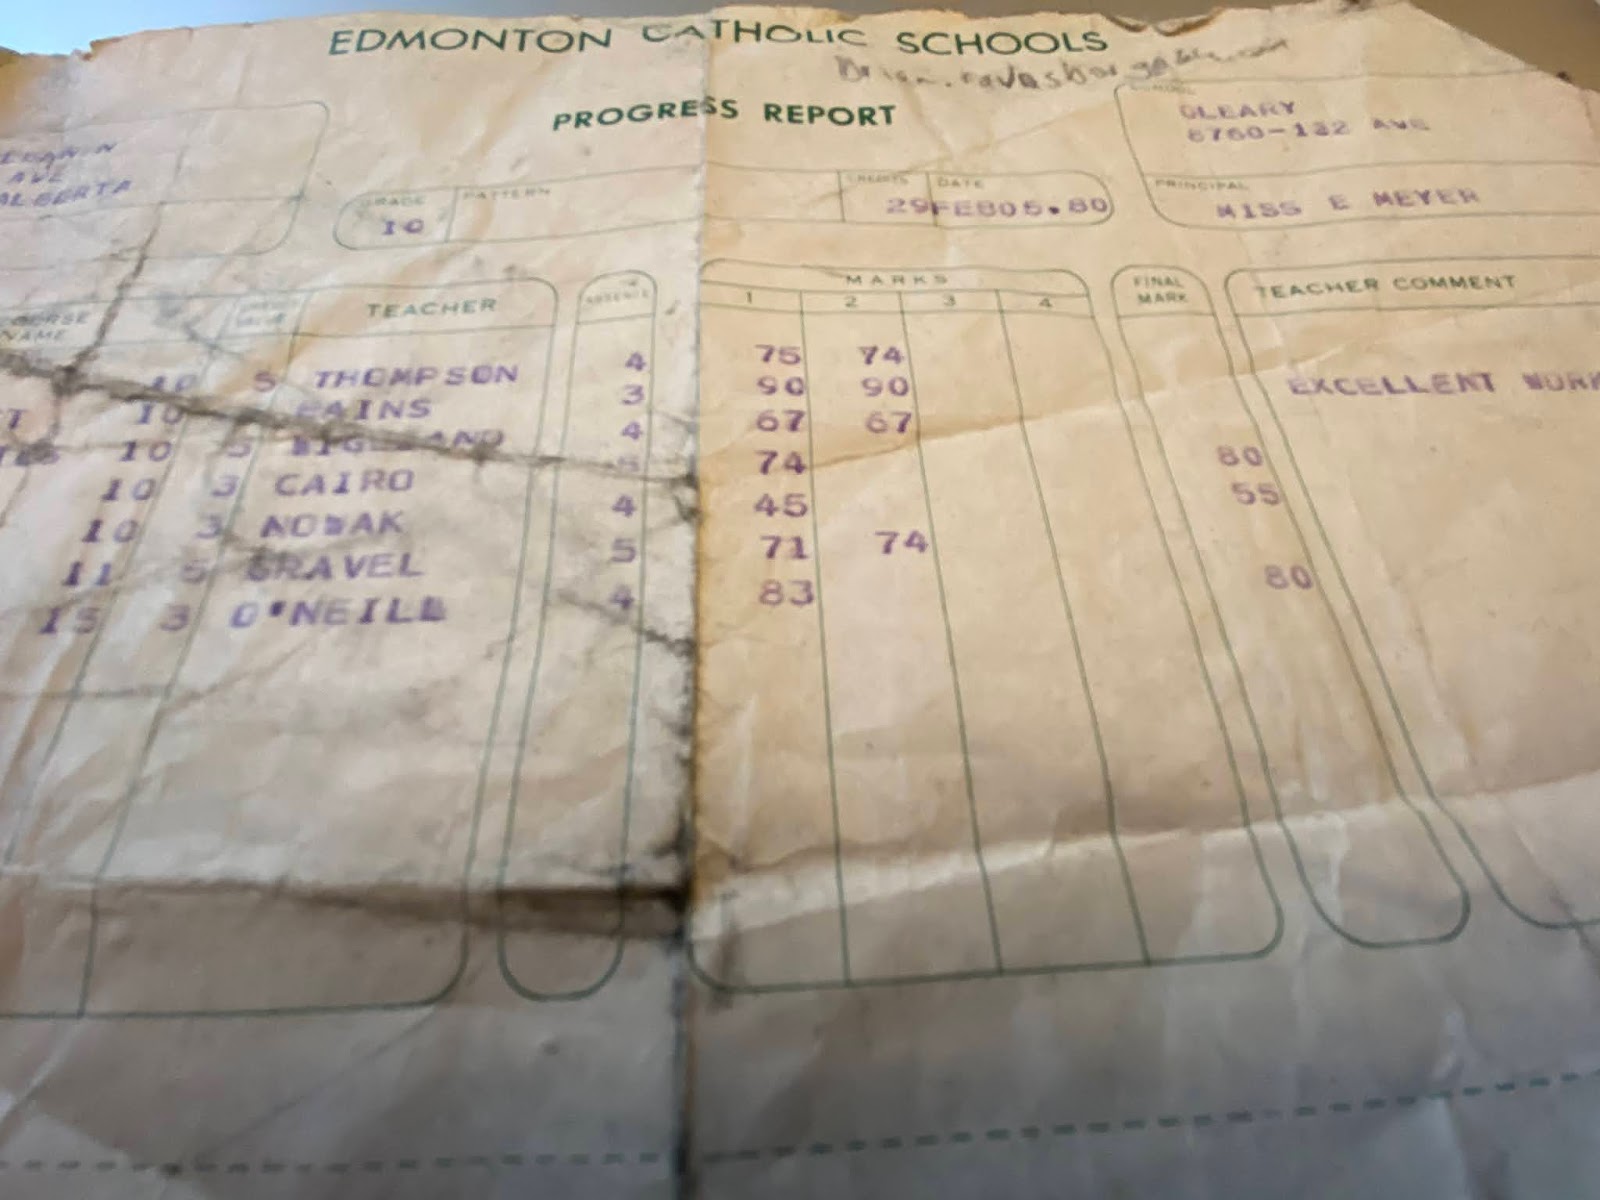 EDMONTON CATHOLIC SCHOOLS
PROGRESS REPORT
OLEARY
8760-132 AVE
AVE
ALBERTA
GRADE PATTERN CREDITS DATE PRINCIPAL
10 29FEB05.80 MISS E MEYER
MARKS
NAME TEACHER ABSENCE 1 2 3 4 FINAL MARK TEACHER COMMENT
10 5 THOMPSON 4 75 74
10 3 90 90 EXCELLENT WORK
10 5 4 67 67
10 3 CAIRO 74 80
10 3 NOWAK 4 45 55
11 5 GRAVEL 5 71 74
15 3 O'NEILL 4 83 80